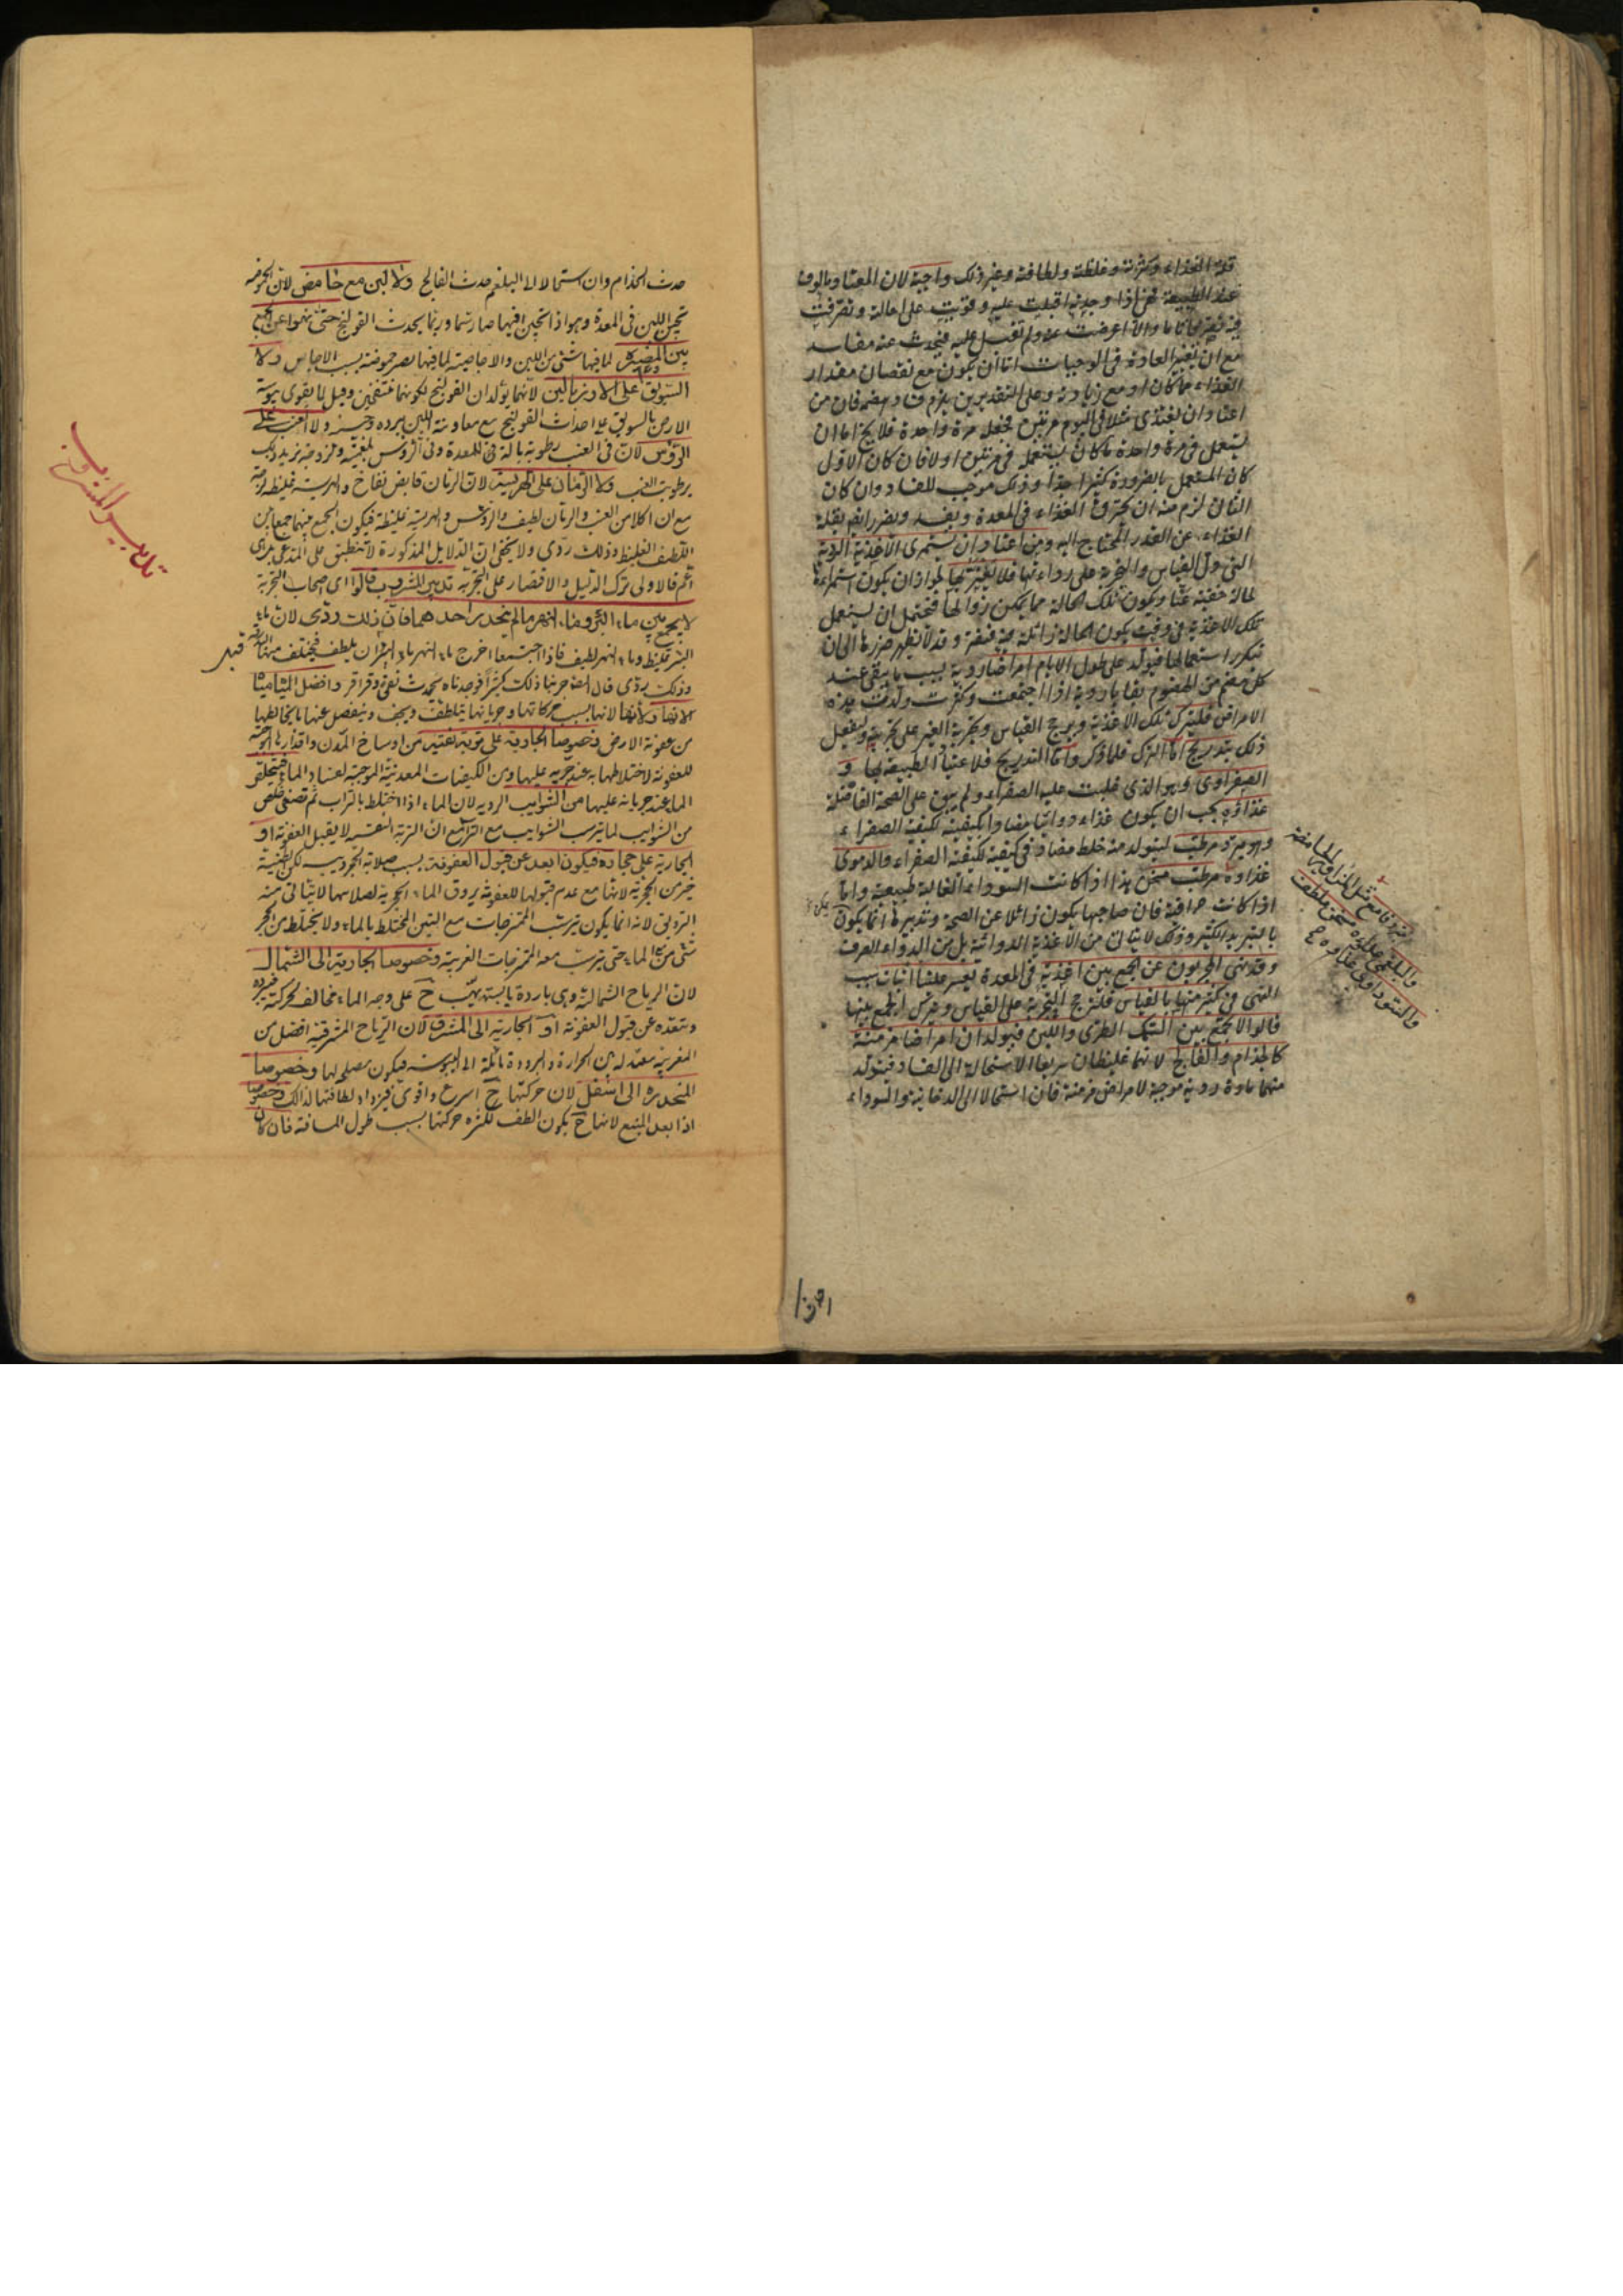 قلة الغذاء وكثرته وغلظته ولطافته وغير ذلك واجبة لان المعتاد مألوف
عند الطبيعة فهى اذا وجدته اقبلت عليه وقويت على احالته وتصرفت
فيه تصرفا تاما والا اعرضت عنه ولم تقبل عليه فيحدث عنه مفاسد
مع ان تغير العادة فى الوجبات اما ان يكون مع نقصان مقدار
الغذاء عما كان او مع زيادته وعلى التقديرين يلزم فساد الهضم فان من
اعتاد ان يغتذى مثلا فى اليوم مرتين فجعل مرة واحدة فلا يخ اما ان
يستعمل فى مرة واحدة ما كان يستعمله فى مرتين او لا فان كان الاول
كان المستعمل بالضرورة كثيرا جدا وذلك موجب للفساد وان كان
الثانى لزم منه ان يحترق الغذاء فى المعدة ويفسد ويضر ايضا بقلة
الغذاء عن القدر المحتاج اليه ومن اعتاد ان يستمرى الاغذية الردية
التى دل القياس والتجربة على رداءتها فلا يغتر بها لجواز ان يكون استمراءه
لحالة خفية عنا ويكون تلك الحالة مما يمكن زوالها فيحتمل ان يستعمل
تلك الاغذية فى وقت يكون الحالة زائلة فيه فتضره وقد لا يظهر ضررها الى ان
يتكرر استعمالها فيولد على طول الايام امراضا ردية بسبب ما يبقى عند
كل هضم من الهضوم بقايا ردية اذا اجتمعت وكثرت ولدت هذه
الامراض فليترك تلك الاغذية ويرجح القياس وتجربة الغير على تجربته وليفعل
ذلك بتدريج اما الترك فلما ذكر واما التدريج فلاعتياد الطبيعة لها و
الصفراوى وهو الذى غلبت عليه الصفراء ولم يبق على الصحة الفاضلة
غذاؤه يجب ان يكون غذاء دوائيا مضادا بكيفيته لكيفية الصفراء
وهو مبرد مرطب ليتولد منه خلط مضاد فى كيفيته لكيفية الصفراء والدموى
غذاوه مرطب مسخن هذا اذا كانت السوداء الغالبة طبيعية واما
اذا كانت حراقية فان صاحبها يكون زائلا عن الصحة وتدبيرها انما يكون
بالتبريد الكثير وذلك لا يتاتى من الاغذية الدوائية بل من الدواء الصرف
وقد نهى المجربون عن الجمع بين اغذية فى المعدة يعسر علينا اثبات سبب
النهى فى كثير منها بالقياس فلنرجح التجربة على القياس ونترك الجمع بينها
قالوا لا يجمع بين السمك الطرى واللبن فيولدان امراضا مزمنة
كالجذام والفالج لانهما غليظان سريعا الاستحالة الى الفساد فيتولد
منهما مادة ردية موجبة لامراض مزمنة فان استحالا الى الدخانية والسوداء
والبلغمى غذاوه مسخن ملطف
والسوداوى غذاوه
حدث الجذام وان استحالا الى البلغم حدث الفالج ولا لبن مع حامض لان الحموضة
تجبن اللبن فى المعدة وهو اذا تجبن فيها صار سما وربما يحدث القولنج حتى نهوا عن الجمع
بين المضيرة لما فيها شئ من اللبن والاجاصية لما فيها بعض حموضة بسبب الاجاص ولا
السويق على الارز بالبن لانهما يولدان القولنج لكونهما منتفخين وقيل لما يقوى يبوسة
الارض بالسويق على احداث القولنج مع معاونة اللبن ببرده ولا العنب على
الرؤس لان فى العنب رطوبة بالة للمعدة وفى الرؤس لزوجة يزيد ذلك
برطوبة العنب ولا الرمان على الهريسة لان الرمان قابض نفاخ والهريسة غليظة لزجة
مع ان كلا من العنب والرمان لطيف والرؤس والهريسة غليظة فيكون الجمع بينهما جمعا بين
اللطيف والغليظ وذلك ردى ولا يخفى ان الدلايل المذكورة لا تنطبق على المدعى
فالاولى ترك الدليل والاقتصار على التجربة تدبير المشروب قالوا اى اصحاب التجربة
لا يجمع بين ماء البئر وماء النهر ما لم ينحدر احدهما فان ذلك ردى لان ماء
البئر غليظ وماء النهر لطيف فاذا اجتمعا اخرج ماء النهر ماء البئر ان يلطف فيختلف
وذلك ردى قال المصـ جربنا ذلك كثيرا فوجدناه يحدث نفخ وقراقر وافضل المياه مياه
الانهار لانها بسبب حركاتها وجريانها يتلطف ويخف وينفصل عنها ما يخالطها
من عفونة الارض وخصوصا الجارية على تربة نقية من اوساخ المدن واقذارها الموجبة
للعفونة لاختلاطها به عند جريه عليها ومن الكيفيات المعدنية الموجبة لفساد الماء فيتخلص
الماء عند جريانه عليها من الشوايب الردية لان الماء اذا اختلط بالتراب ثم تصفى خلص
من الشوايب لما يترسب الشوايب مع التراب مع ان التربة النقية لا يقبل العفونة او
الجارية على حجارة فيكون ابعد عن قبول العفونة بسبب صلابة الحجر لكن الطينية
خير من الحجرية لانها مع عدم قبولها للعفونة يروق الماء والحجرية لصلابتها لا يتاتى منه
الترويق لانه انما يكون بترسب الممتزجات مع الطين المختلط بالماء ولا يختلط من الحجر
شئ من الماء حتى يترسب معه الممتزجات الغريبة وخصوصا الجارية الى الشمال
لان الرياح الشمالية وهى باردة يابسة تهب ح على وجه الماء مخالف لحركته فتبرده
وتبعده عن قبول العفونة او الجارية الى المشرق لان الرياح المشرقية افضل من
المغربية معتدلة بين الحرارة والبرودة مائلة الى اليبوسة فيكون مصلح لها وخصوصا
المنحدرة الى اسفل لان حركتها ح اسرع واقوى فيزداد لطافتها لذلك وخصوصا
اذا بعد المنبع لانها ح يكون الطف لكثرة حركتها بسبب طول المسافة فان كان
تدبير المشروب